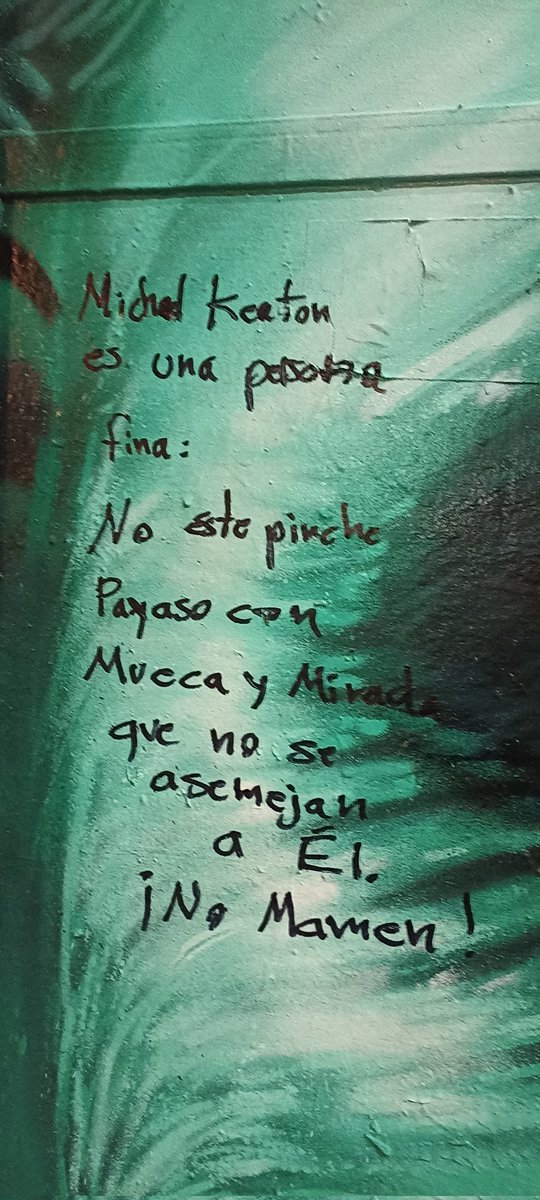 Michael Keaton
es una persona
fina:
No este pinche
Payaso con
Mueca y Mirada
que no se
asemejan
a Él.
¡No Mamen!